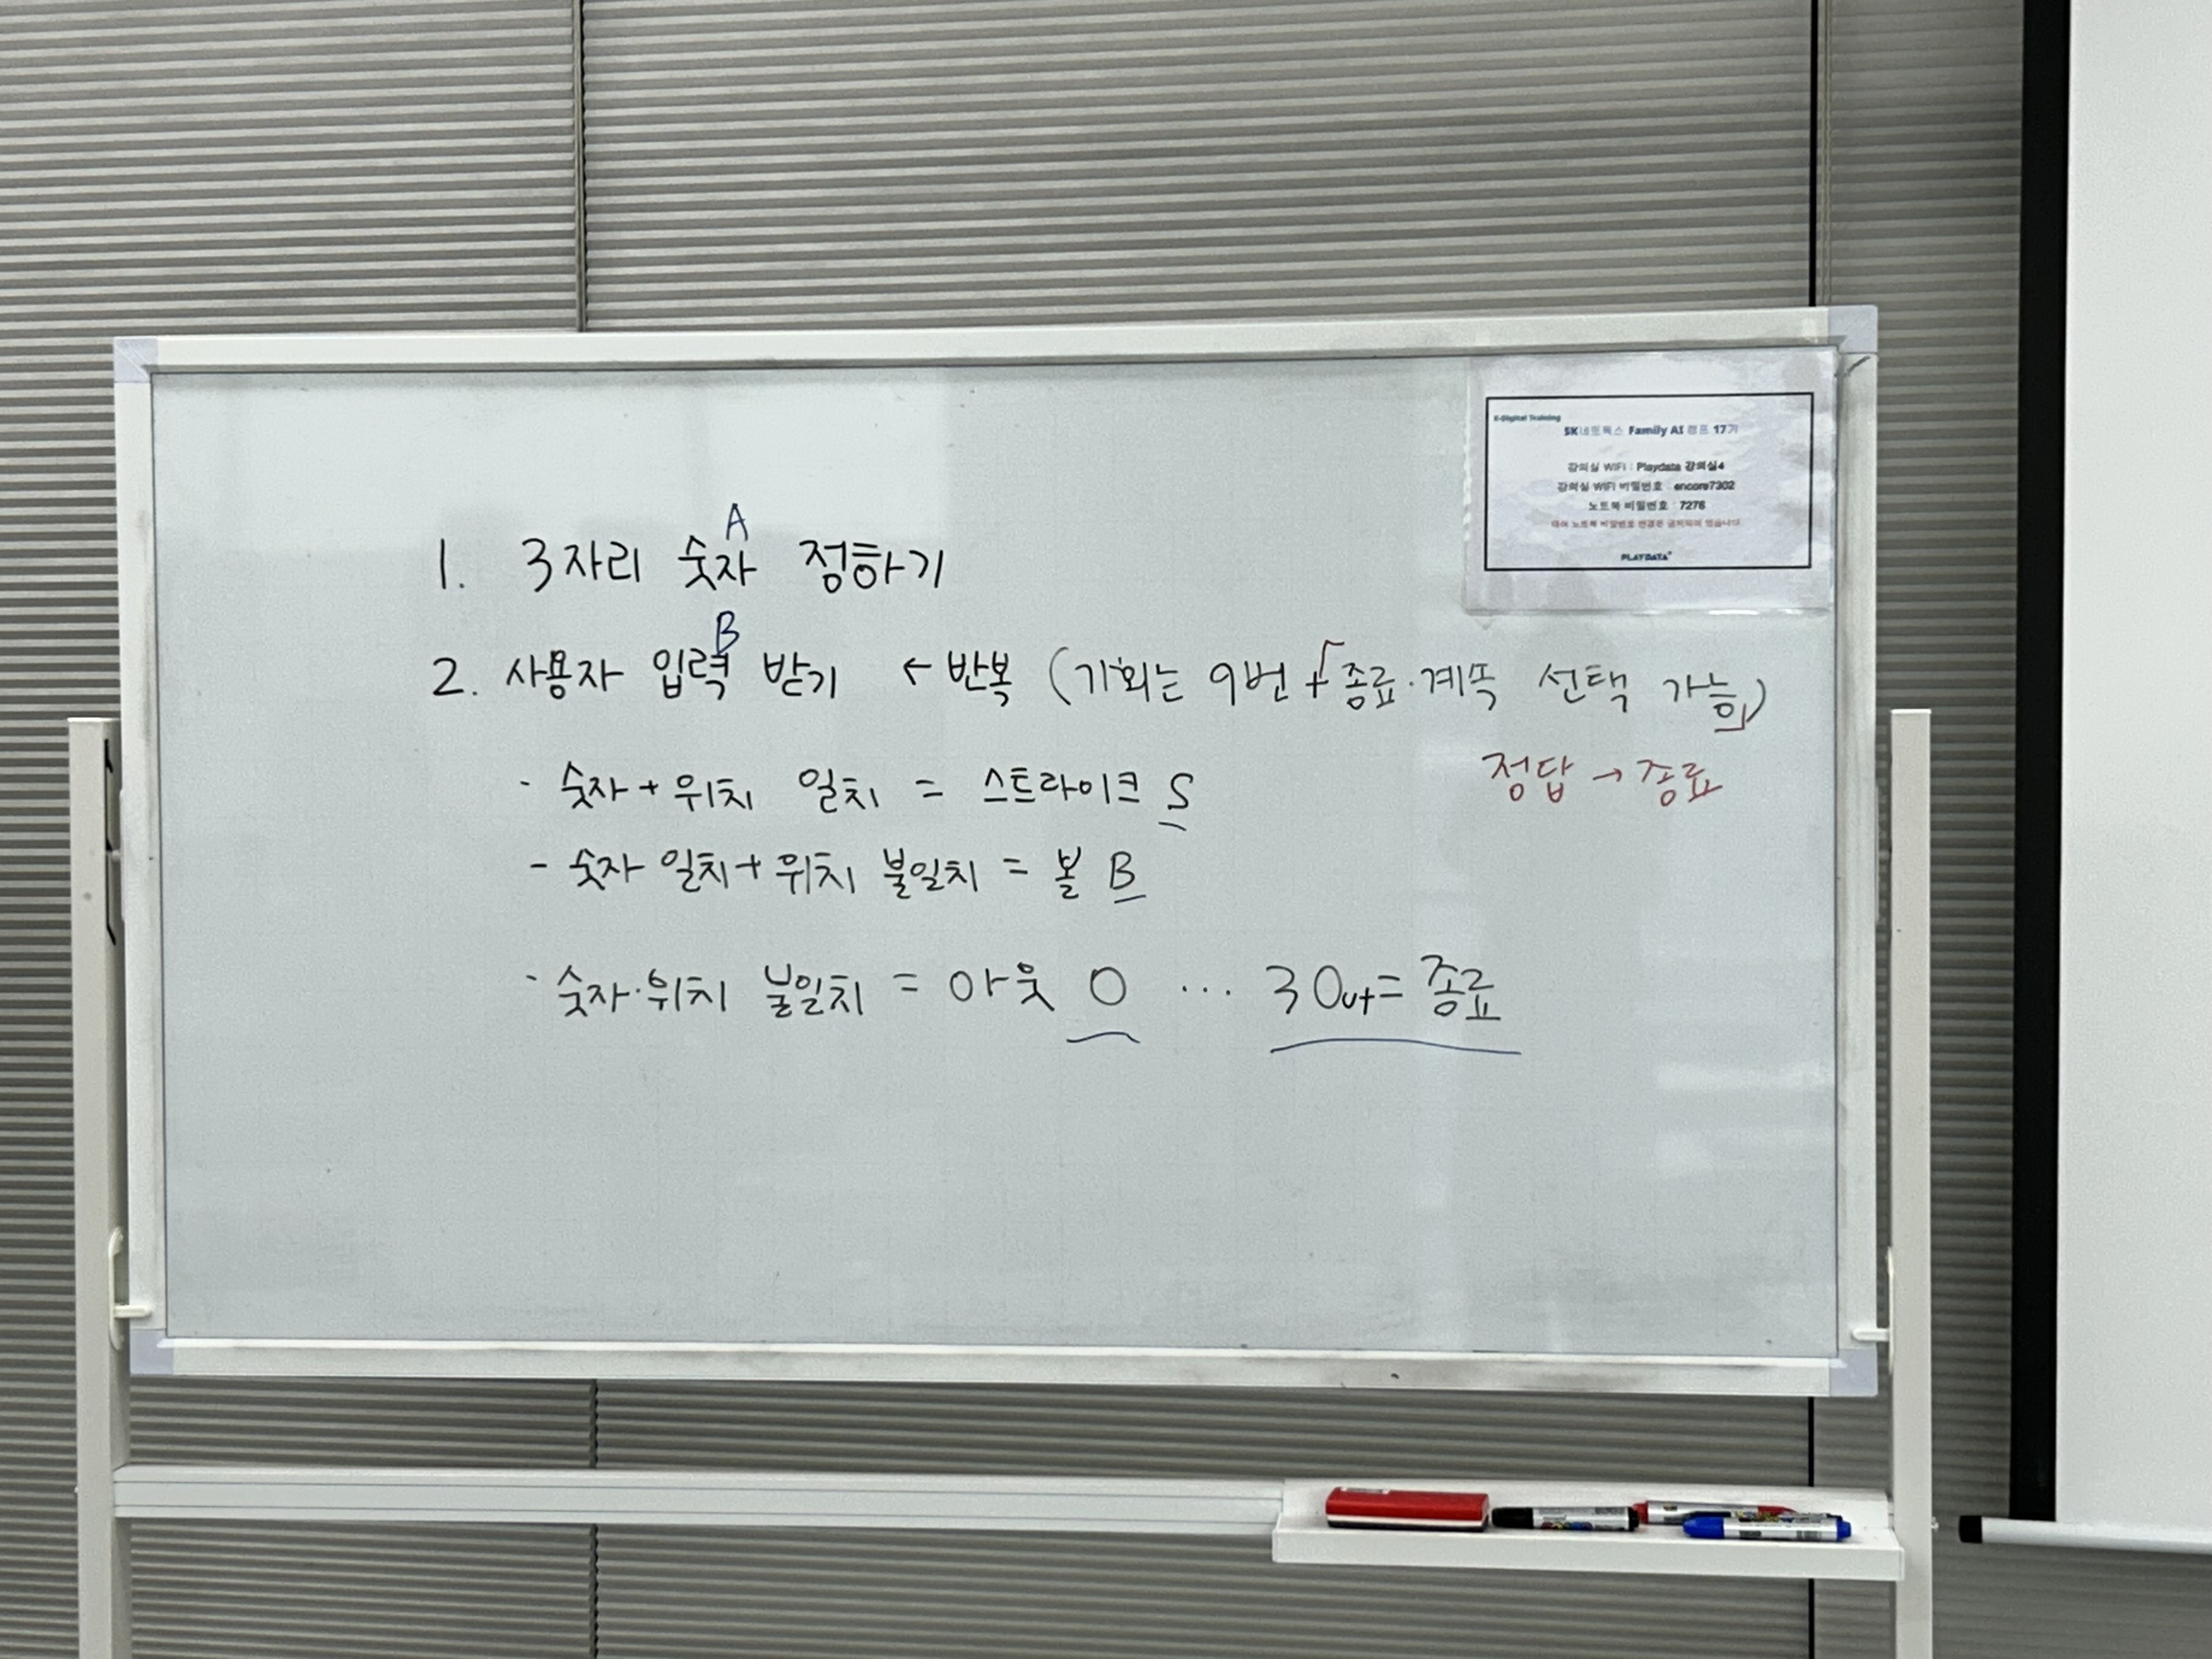 K-Digital Training
SK네트웍스 Family AI 캠프 17기
강의실 WIFI : Playdata 강의실4
강의실 WIFI 비밀번호 : encore7302
노트북 비밀번호 : 7276
노트북 비밀번호 변경은 금지되어 있습니다
PLAYDATA
A
1. 3자리 숫자 정하기
B
2. 사용자 입력 받기 ← 반복 (기회는 9번 + 종료·계속 선택 가능)
정답 → 종료
· 숫자 + 위치 일치 = 스트라이크 S
- 숫자 일치 + 위치 불일치 = 볼 B
· 숫자·위치 불일치 = 아웃 O ... 3 Out = 종료